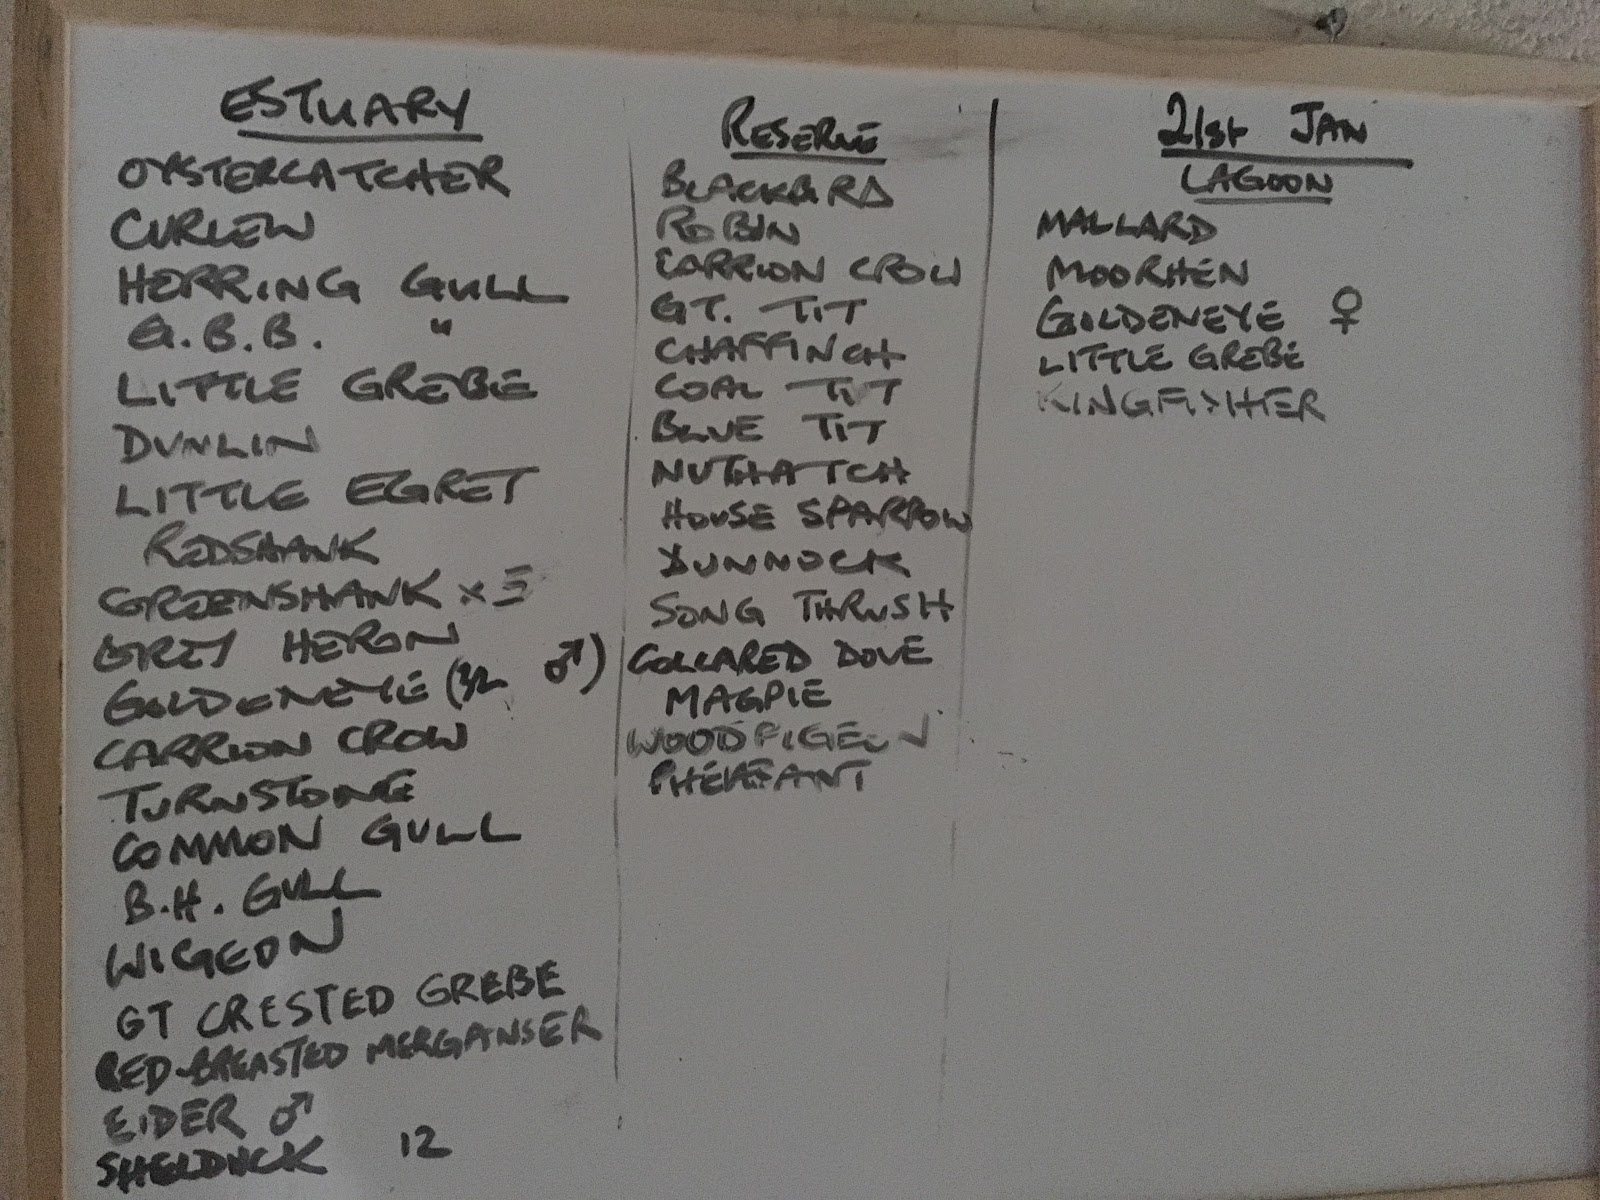 ESTUARY
OYSTERCATCHER
CURLEW
HERRING GULL
G.B.B. "
LITTLE GREBE
DUNLIN
LITTLE EGRET
REDSHANK
GREENSHANK x
GREY HERON
GOLDENEYE ( ♂)
CARRION CROW
TURNSTONE
COMMON GULL
B.H. GULL
WIGEON
GT CRESTED GREBE
RED-BREASTED MERGANSER
EIDER ♂
SHELDUCK 12
RESERVE
BLACKBIRD
ROBIN
CARRION CROW
GT. TIT
CHAFFINCH
COAL TIT
BLUE TIT
NUTHATCH
HOUSE SPARROW
DUNNOCK
SONG THRUSH
COLLARED DOVE
MAGPIE
WOODPIGEON
PHEASANT
21st JAN
LAGOON
MALLARD
MOORHEN
GOLDENEYE ♀
LITTLE GREBE
KINGFISHER